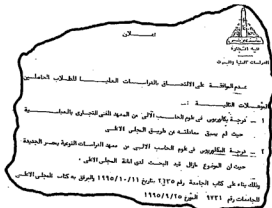 إعلان
كلية التجارة
الدراسات العليا والبحوث
عدم الموافقة على الالتحاق بالدراسات العليا للطلاب الحاصلين
المؤهلات التالية :-
١ - درجة بكالوريوس فى علوم الحاسب الآلى من المعهد الفنى التجارى بالعباسية
حيث لم يسبق معادلته عن طريق المجلس الأعلى
٢ - درجة البكالوريوس فى علوم الحاسب الآلى من معهد الدراسات النوعية بمصر الجديدة
حيث أن الموضوع مازال قيد البحث لدى أمانة المجلس الأعلى .
وذلك بناء على كتاب الجامعة رقم ٢٦٢٥ بتاريخ ١٩٩٥/١٠/١١ والمرفق به كتاب المجلس الأعلى
للجامعات رقم ٩٢٣١ المؤرخ ١٩٩٥/٩/٢٥